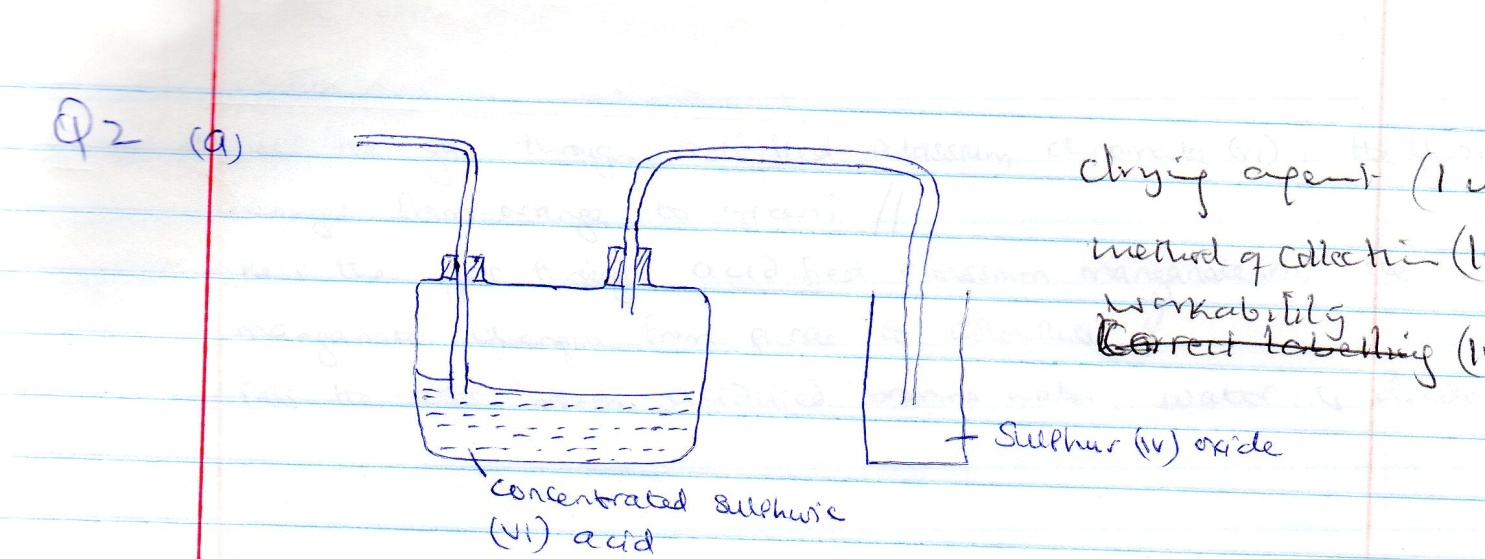 Q2 (a)
drying agent (1
method of collection (1
workability
Correct labelling (1
Sulphur (iv) oxide
concentrated sulphuric
(vi) acid